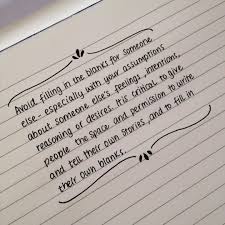 Avoid filling in the blanks for someone
else- especially with your assumptions
about someone else's feelings, intentions,
reasoning or desires. It is critical to give
people the space and permission to write
and tell their own stories, and to fill in
their own blanks.